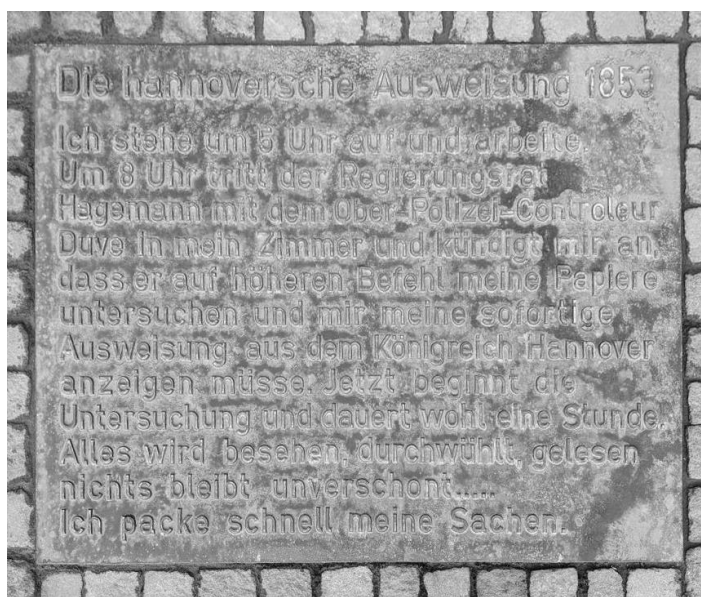 Die hannoversche Ausweisung 1853
Ich stehe um 5 Uhr auf und arbeite.
Um 8 Uhr tritt der Regierungsrat
Hagemann mit dem Ober-Polizei-Controleur
Düve in mein Zimmer und kündigt mir an,
dass er auf höheren Befehl meine Papiere
untersuchen und mir meine sofortige
Ausweisung aus dem Königreich Hannover
anzeigen müsse. Jetzt beginnt die
Untersuchung und dauert wohl eine Stunde.
Alles wird besehen, durchwühlt, gelesen
nichts bleibt unverschont.....
Ich packe schnell meine Sachen.